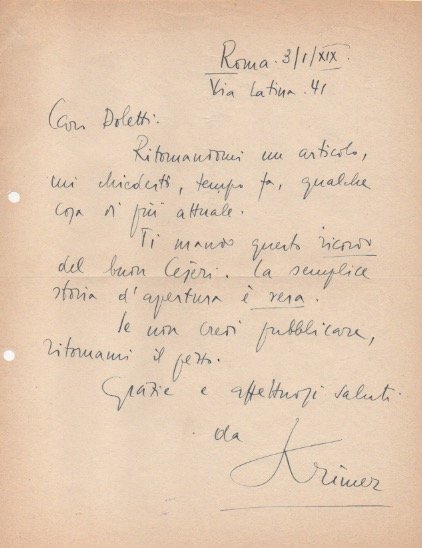 Roma. 3/I/XIX.
Via Latina. 41
Caro Doletti.
Ritornandomi un articolo,
mi chiedesti, tempo fa, qualche
cosa di più attuale.
Ti mando questo ricordo
del buon Cejeri. La semplice
storia d'apertura è vera.
Se non credi pubblicare,
ritornami il pezzo.
Grazie e affettuosi saluti
da
Krimer